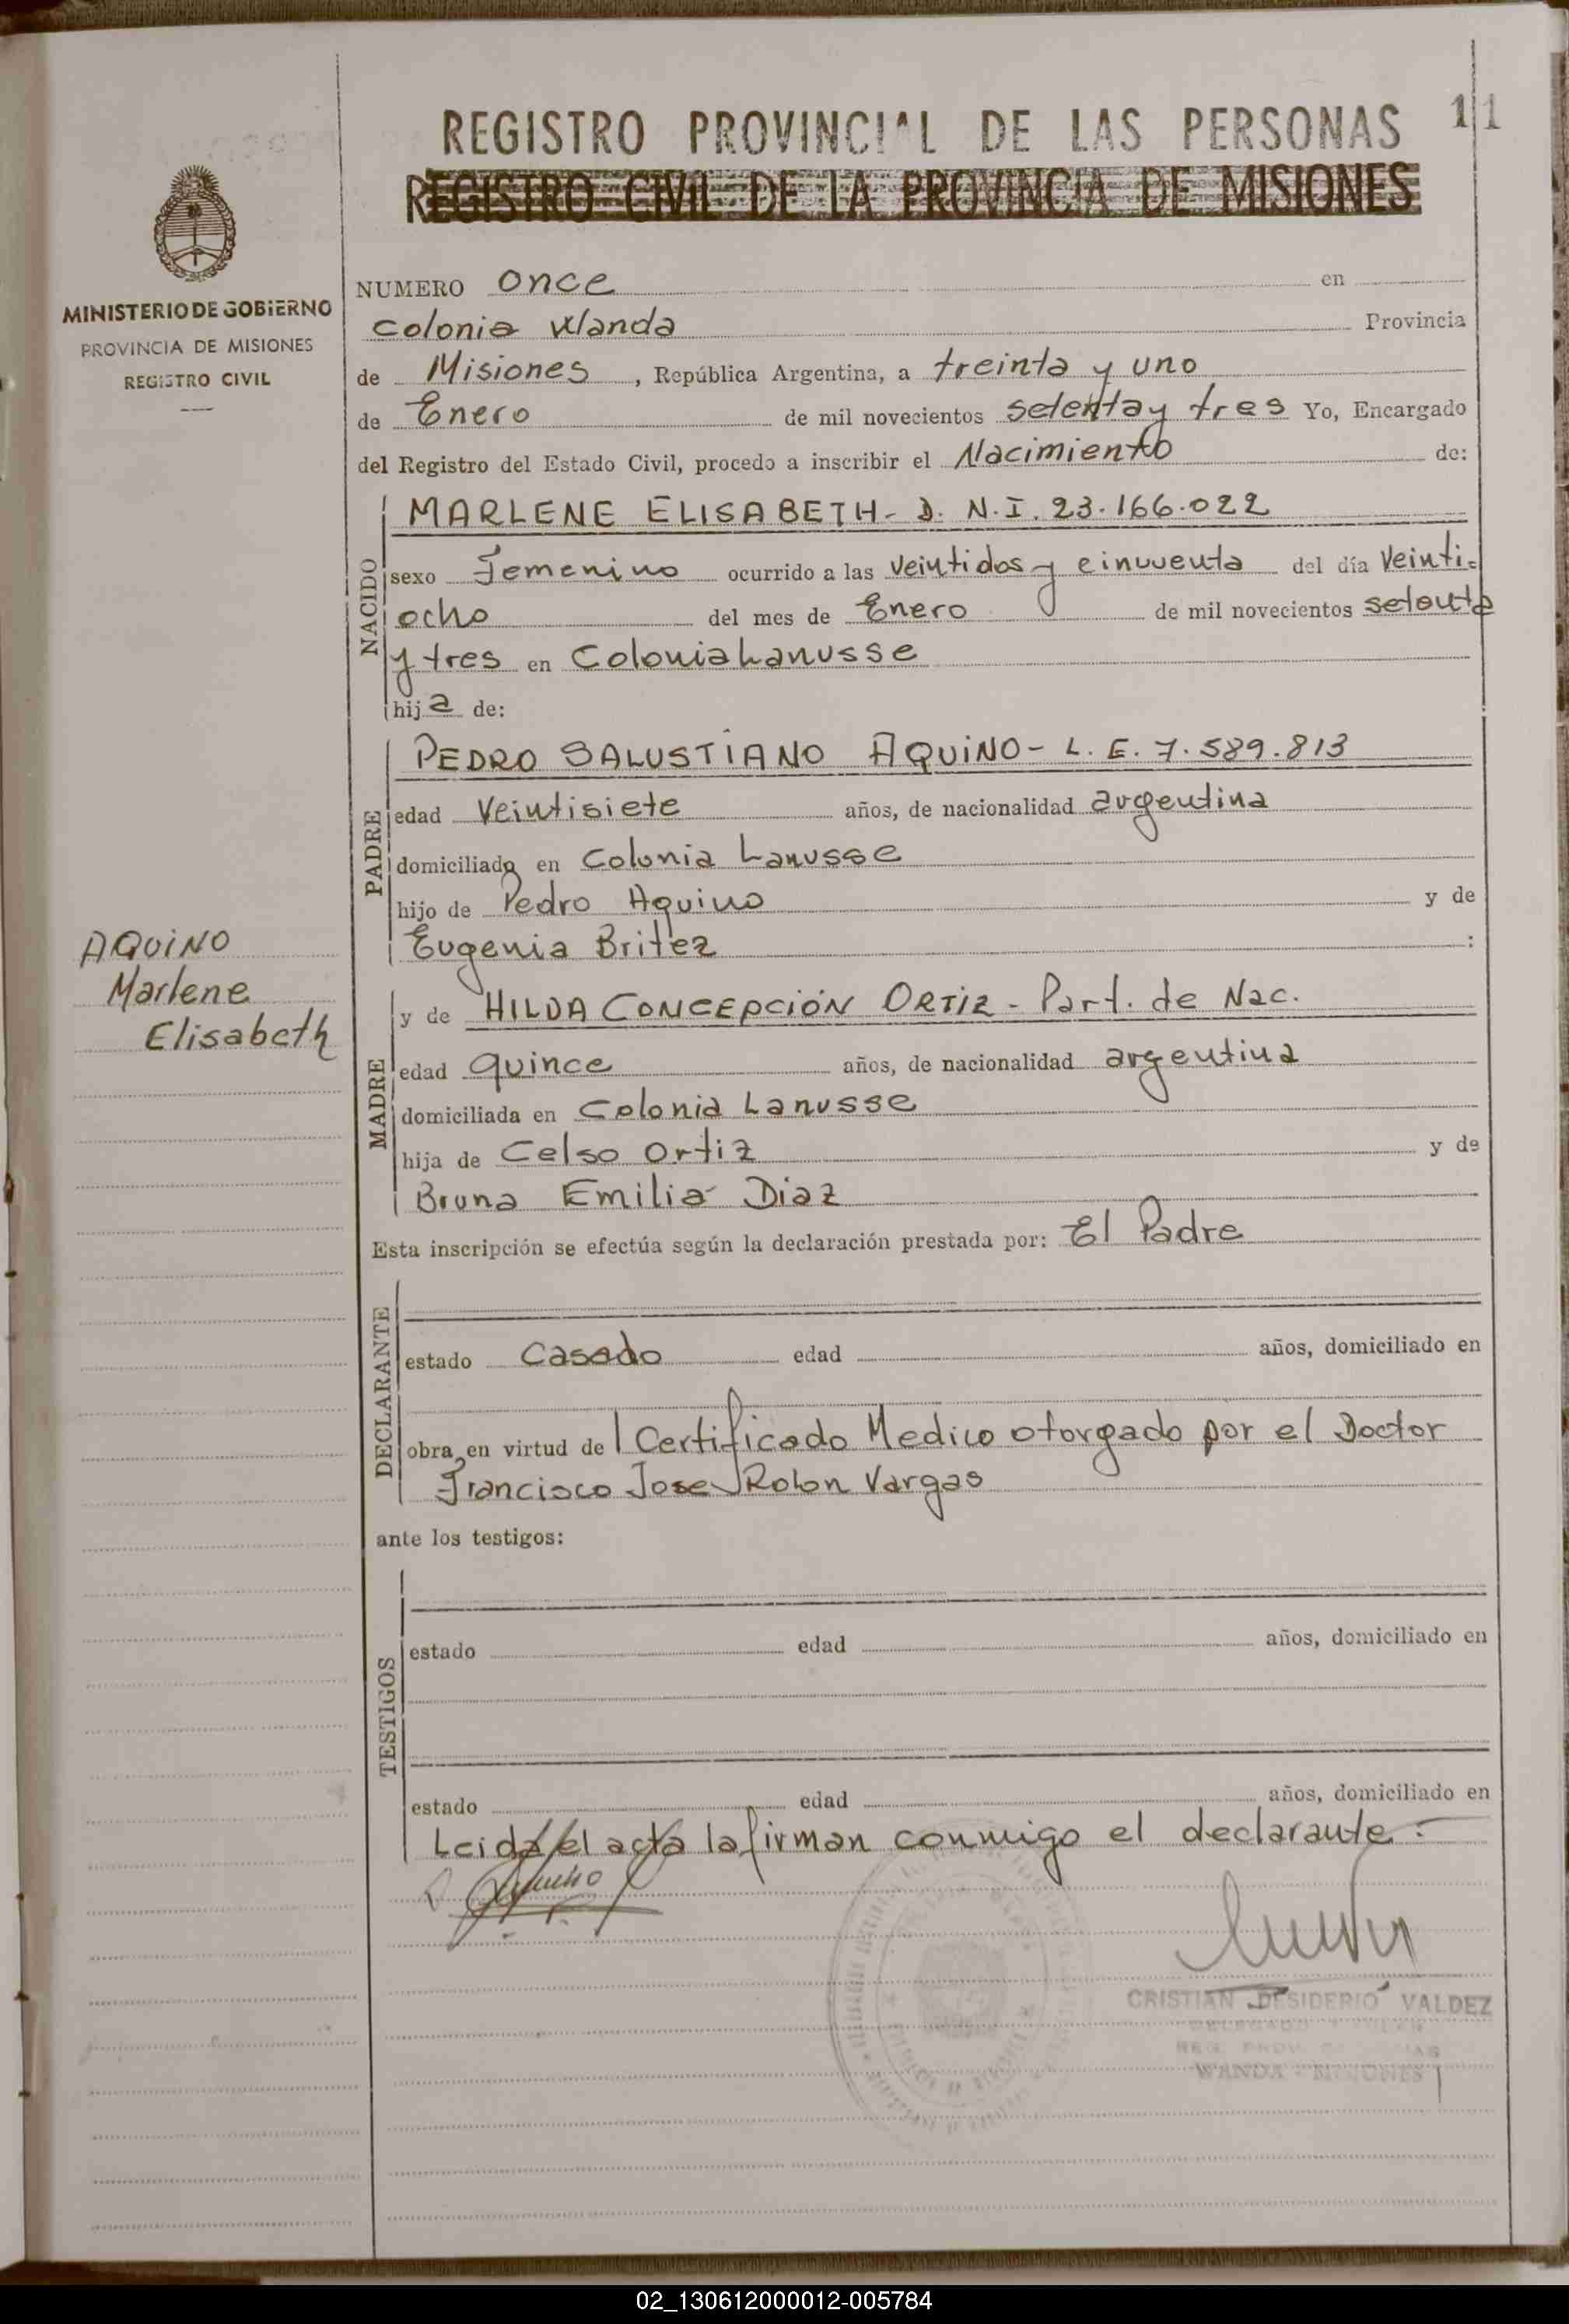 REGISTRO PROVINCIAL DE LAS PERSONAS 11
REGISTRO CIVIL DE LA PROVINCIA DE MISIONES
MINISTERIO DE GOBIERNO
PROVINCIA DE MISIONES
REGISTRO CIVIL
NUMERO Once en
Colonia Wanda Provincia
de Misiones, República Argentina, a treinta y uno
de Enero de mil novecientos setenta y tres Yo, Encargado
del Registro del Estado Civil, procedo a inscribir el Nacimiento de:
NACIDO
MARLENE ELISABETH - D. N. I. 23.166.022
sexo Femenino ocurrido a las veintidos y cincuenta del día veinti-
ocho del mes de Enero de mil novecientos setenta
y tres en Colonia Lanusse
hija de:
PADRE
PEDRO SALUSTIANO AQUINO - L. E. 7.589.813
edad Veintisiete años, de nacionalidad argentina
domiciliado en Colonia Lanusse
hijo de Pedro Aquino y de
Eugenia Britez :
AQUINO
Marlene
Elisabeth
MADRE
y de HILDA CONCEPCIÓN ORTIZ - Part. de Nac.
edad quince años, de nacionalidad argentina
domiciliada en Colonia Lanusse
hija de Celso Ortiz y de
Bruna Emilia Diaz
Esta inscripción se efectúa según la declaración prestada por: El Padre
DECLARANTE
estado Casado edad años, domiciliado en
obra en virtud del Certificado Medico otorgado por el Doctor
Francisco Jose Rolon Vargas
ante los testigos:
TESTIGOS
estado edad años, domiciliado en
estado edad años, domiciliado en
Leida el acta la firman conmigo el declarante.-
CRISTIAN DESIDERIO VALDEZ
WANDA - MISIONES
02_130612000012-005784